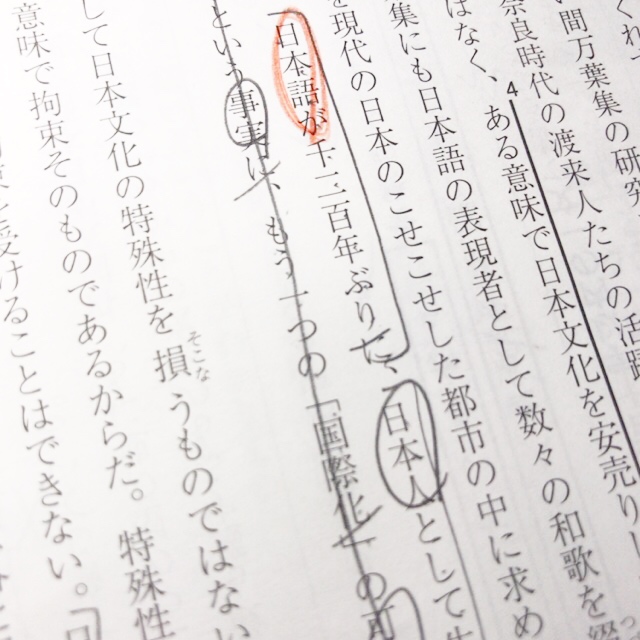 間万葉集の研究
奈良時代の渡来人たちの活躍
はなく、4ある意味で日本文化を安売り
集にも日本語の表現者として数々の和歌を
を現代の日本のこせこせした都市の中に求め
日本語が十二、三百年ぶりに、日本人として
という事実は、もう一つの「国際化」の
して日本文化の特殊性を損うものではない
そこな
意味で拘束そのものであるからだ。特殊性
受けることはできない。